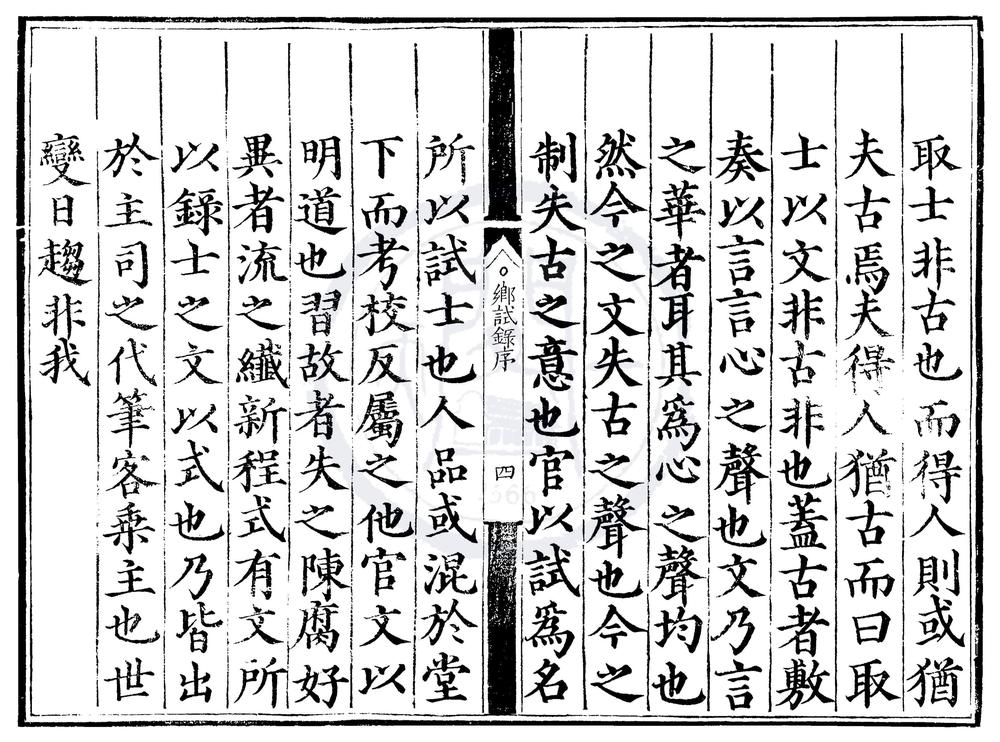 取士非古也而得人則或猶
夫古焉夫得人猶古而曰取
士以文非古非也蓋古者敷
奏以言言心之聲也文乃言
之華者耳其爲心之聲均也
然今之文失古之聲也今之
制失古之意也官以試爲名
鄉試錄序
四
所以試士也人品或混於堂
下而考校反屬之他官文以
明道也習故者失之陳腐好
異者流之纖新程式有文所
以錄士之文以式也乃皆出
於主司之代筆客乘主也世
變日趨非我